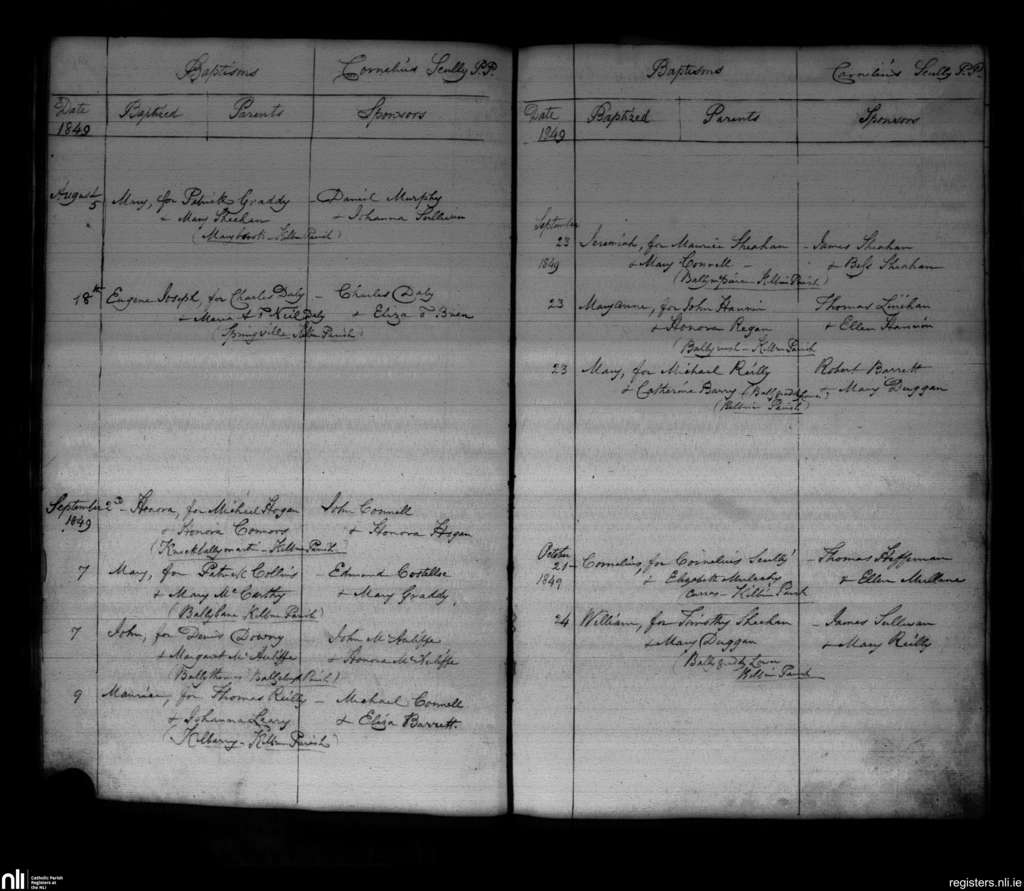 Baptisms Cornelius Scully P.P.
Date Baptized Parents Sponsors
1849
August 5 Mary, for Patrick Graddy Daniel Murphy
& Mary Sheehan & Johanna Sullivan
Parish)
18th Eugene Joseph, for Charles Daly – Charles Daly
& Maria Daly & Eliza O'Brien
(Springville Parish)
September 2nd – Honora, for Michael Hogan John Connell
1849 & Honora Connors & Honora Hogan
(Knockballymartin – Parish)
7 Mary, for Patrick Collins – Edmund Costelloe
& Mary McCarthy & Mary Graddy,
(Ballybane Parish)
7 John, for Denis Downy John McAuliffe
& Margaret McAuliffe & Honora McAuliffe
Parish)
9 Maurice, for Thomas Reilly – Michael Connell
& Johanna Leary & Eliza Barrett.
(Kilbarry – Parish)
Baptisms Cornelius Scully P.P.
Date Baptized Parents Sponsors
1849
September
23 Jeremiah, for Maurice Sheahan – James Sheahan
1849 & Mary Connell – & Bess Sheahan
Parish)
23 Maryanne, for John Thomas Linehan
& Honora Regan & Ellen
Parish
23 Mary, for Michael Reilly Robert Barrett
& Catherine Barry & Mary Duggan
Parish)
October
21 – Cornelius, for Cornelius Scully – Thomas Heffernan
1849 & Elizabeth & Ellen Mullane
Parish
24 William, for Timothy Sheehan – James Sullivan
& Mary Duggan & Mary Reilly
Parish
nli
Catholic Parish
Registers at
the NLI
registers.nli.ie